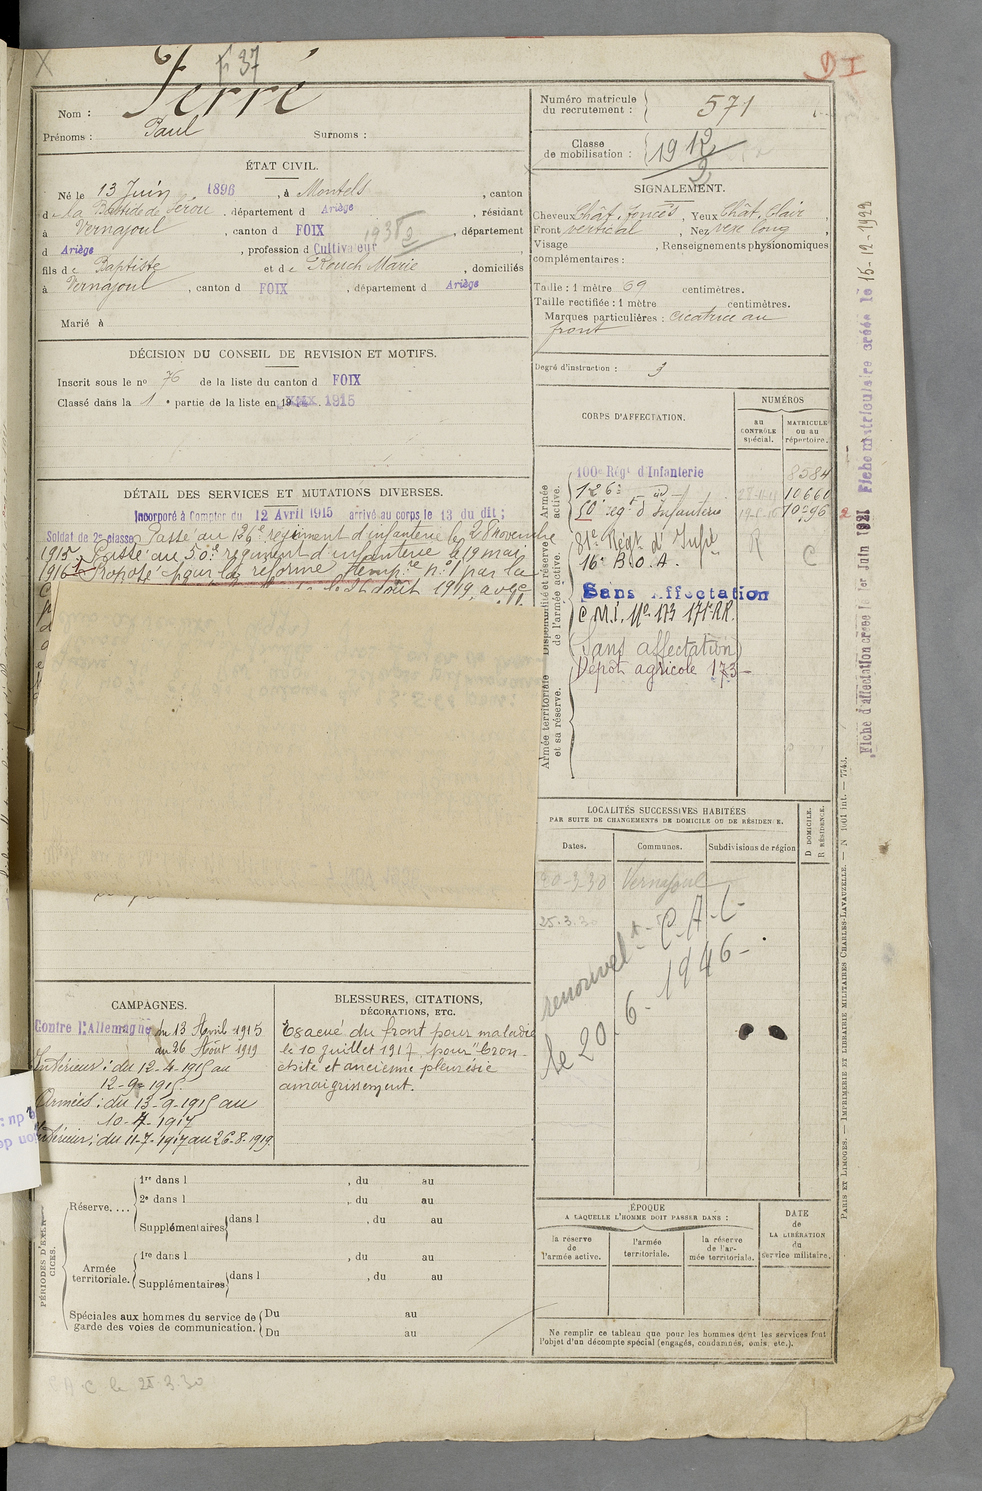 X
p. 37
D I
Nom : Ferré
Prénoms : Paul Surnoms :
Numéro matricule
du recrutement : 571
Classe
de mobilisation : 1912
2
ÉTAT CIVIL.
Né le 13 Juin 1896, à Montels, canton
d e la Bastide de Serou, département d Ariège, résidant
à Vernajoul, canton d FOIX, département
d Ariège, profession de Cultivateur
fils de Baptiste et de Rouch Marie, domiciliés
à Vernajoul, canton d FOIX, département d Ariège
Marié à
SIGNALEMENT.
Cheveux Chât. foncés, Yeux Chât. clair
Front vertical, Nez long
Visage , Renseignements physionomiques
complémentaires :
Taille : 1 mètre 69 centimètres.
Taille rectifiée : 1 mètre centimètres.
Marques particulières : cicatrice au
front
Degré d'instruction : 3
DÉCISION DU CONSEIL DE REVISION ET MOTIFS.
Inscrit sous le nº 76 de la liste du canton d FOIX
Classé dans la 1e partie de la liste en 1915
DÉTAIL DES SERVICES ET MUTATIONS DIVERSES.
Incorporé à Compter du 12 Avril 1915 arrivé au corps le 13 du dit ;
Soldat de 2e classe, Passé au 126e régiment d'infanterie le 28 novembre
1915. Passé au 50e régiment d'infanterie le 19 mai
1916. Proposé pour la réforme temp.re nº1 par la
août 1919, avec
CORPS D'AFFECTATION.
NUMÉROS
au
CONTRÔLE
spécial.
MATRICULE
ou au
répertoire.
Armée
active.
100e Régt d'Infanterie 8584
126e id 28-11-15 10660
50e reg. d'Infanterie 19-5-16 10296
Disponibilité et réserve
de l'armée active.
81e Régt d'Infie R C
16e B.O.A.
Sans Affectation
C.M.I. Nº 173 171e RR.
Armée territoriale
et sa réserve.
(Sans affectation)
Dépôt agricole 173
Fiche matriculaire créée le 15-12-1922
Fiche d'affectation créée le 1er Juin 1921
LOCALITÉS SUCCESSIVES HABITÉES
PAR SUITE DE CHANGEMENTS DE DOMICILE OU DE RÉSIDENCE.
Dates. Communes. Subdivisions de région
D DOMICILE.
R RÉSIDENCE.
20-3-30 Vernajoul
25.3.30
renouvelt C.A.C.
le 20.6.1946
CAMPAGNES.
Contre l'Allemagne du 13 Avril 1915
au 26 Août 1919
Intérieur : du 12-4-1915 au
12-9-1915
Armées : du 13-9-1915 au
10-7-1917
Intérieur : du 11-7-1917 au 26-8-1919.
BLESSURES, CITATIONS,
DÉCORATIONS, ETC.
Évacué du front pour maladie
le 10 juillet 1917, pour "Bron-
chite et ancienne pleurésie
amaigrissement.
PÉRIODES D'EXER-
CICES.
Réserve....
1re dans l , du au
2e dans l , du au
Supplémentaires dans l , du au
Armée
territoriale.
1re dans l , du au
Supplémentaires dans l , du au
Spéciales aux hommes du service de
garde des voies de communication.
Du au
Du au
ÉPOQUE
A LAQUELLE L'HOMME DOIT PASSER DANS :
la réserve
de
l'armée active.
l'armée
territoriale.
la réserve
de l'ar-
mée territoriale.
DATE
de
LA LIBÉRATION
du
service militaire.
Ne remplir ce tableau que pour les hommes dont les services font
l'objet d'un décompte spécial (engagés, condamnés, omis, etc.).
PARIS ET LIMOGES. — IMPRIMERIE ET LIBRAIRIE MILITAIRES CHARLES-LAVAUZELLE. — N 1001 int. — 7743.
C.A.C le 25.3.30